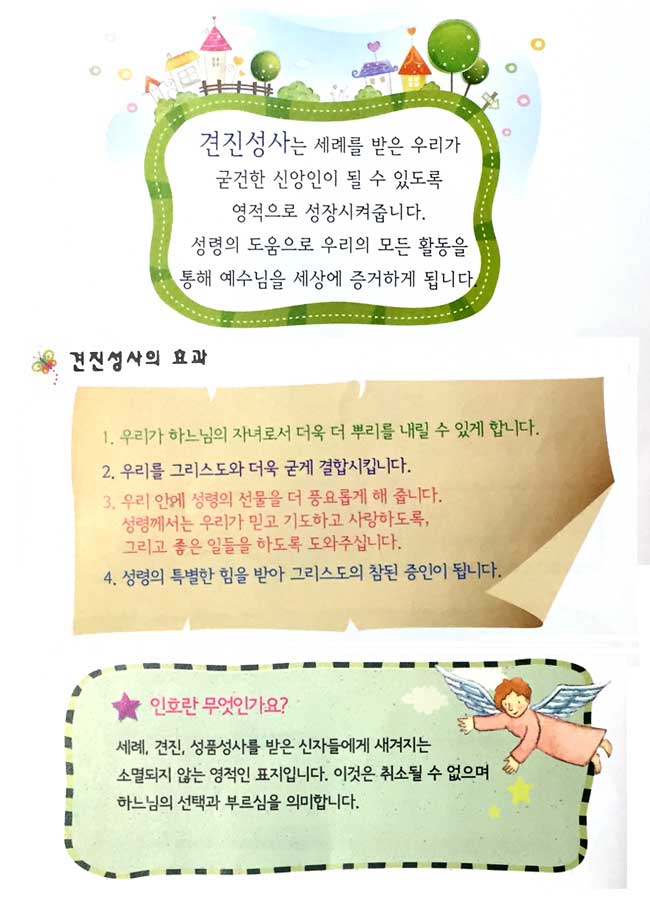 견진성사는 세례를 받은 우리가
굳건한 신앙인이 될 수 있도록
영적으로 성장시켜줍니다.
성령의 도움으로 우리의 모든 활동을
통해 예수님을 세상에 증거하게 됩니다.
견진성사의 효과
1. 우리가 하느님의 자녀로서 더욱 더 뿌리를 내릴 수 있게 합니다.
2. 우리를 그리스도와 더욱 굳게 결합시킵니다.
3. 우리 안에 성령의 선물을 더 풍요롭게 해 줍니다.
성령께서는 우리가 믿고 기도하고 사랑하도록,
그리고 좋은 일들을 하도록 도와주십니다.
4. 성령의 특별한 힘을 받아 그리스도의 참된 증인이 됩니다.
인호란 무엇인가요?
세례, 견진, 성품성사를 받은 신자들에게 새겨지는
소멸되지 않는 영적인 표지입니다. 이것은 취소될 수 없으며
하느님의 선택과 부르심을 의미합니다.